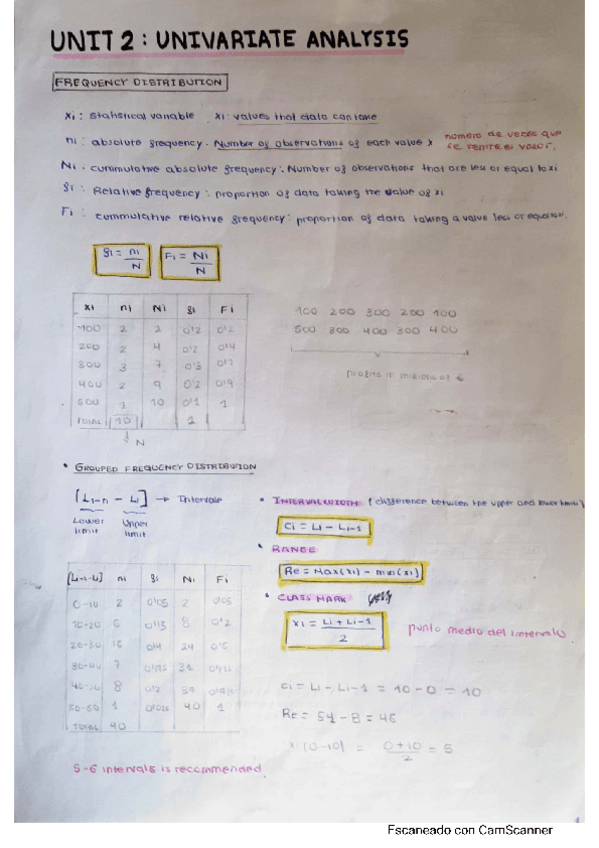 UNIT 2: UNIVARIATE ANALYSIS
FREQUENCY DISTRIBUTION
Xi: Statistical variable xi: values that data can take
ni: absolute frequency. Number of observations of each value x numero de veces que se repite el valor.
Ni. cummulative absolute frequency: Number of observations that are less or equal to xi
fi: Relative frequency: proportion of data taking the value of xi
Fi: cummulative relative frequency: proportion of data taking a value less or equal
fi = ni/N Fi = Ni/N
xi ni Ni fi Fi
100 2 2 0'2 0'2
200 2 4 0'2 0'4
300 3 7 0'3 0'7
400 2 9 0'2 0'9
500 1 10 0'1 1
TOTAL 10
N
100 200 300 200 100
500 300 400 300 400
profits in millions of €
• GROUPED FREQUENCY DISTRIBUTION
[Li-1 - Li] → Intervals
Lower limit Upper limit
• INTERVAL WIDTH: (difference between the upper and lower limits)
Ci = Li - Li-1
• RANGE
Re = Max(xi) - min(xi)
• CLASS MARK
xi = Li + Li-1 / 2
punto medio del intervalo
[Li-1-Li] ni fi Ni Fi
0-10 2 0'05 2 0'05
10-20 6 0'15 8 0'2
20-30 16 0'4 24 0'6
30-40 7 0'175 31
8 0'2 39
1 0'025 40 1
TOTAL 40
Ci = Li - Li-1 = 10 - 0 = 10
Re = 54 - 8 = 46
x (0-10) = 0+10 / 2 = 5
5-6 intervals is recommended
Escaneado con CamScanner